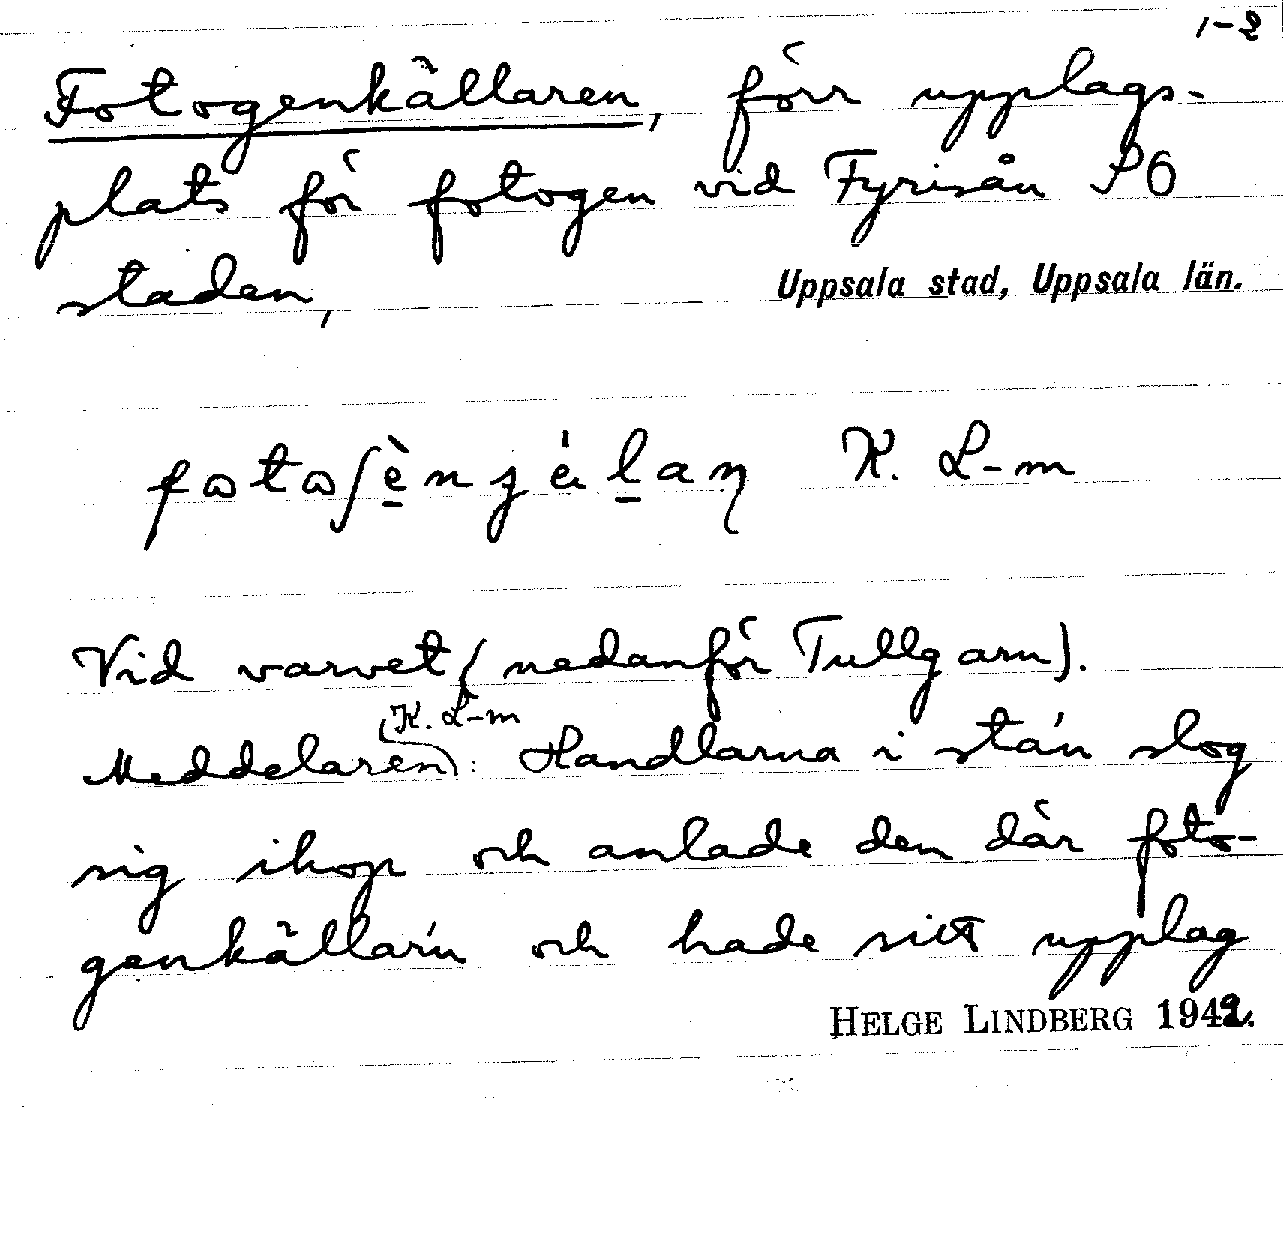 1-2
Fotogenkällaren, förr upplags-
plats för fotogen vid Fyrisån SÖ
staden,
Uppsala stad, Uppsala län.
K. L-m
Vid varvet (nedanför Tullgarn).
K. L-m
Meddelaren: Handlarna i stá'n slog
sig ihop och anlade den där foto-
genkällar'n och hade sitt upplag
HELGE LINDBERG 1942.